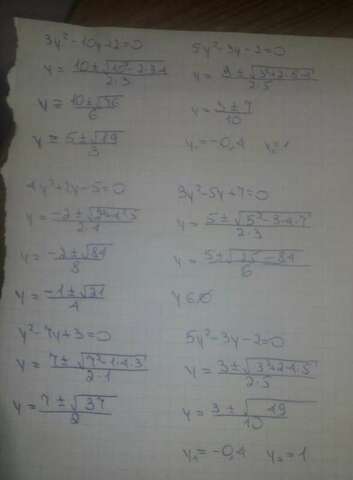 3y² - 10y + 2 = 0
y = (10 ± √(10² - 2·3·4)) / (2·3)
y = (10 ± √76) / 6
y = (5 ± √19) / 3
5y² - 3y - 2 = 0
y = (3 ± √(3² + 2·5·4)) / (2·5)
y = (3 ± 7) / 10
y₁ = -0,4 y₂ = 1
4y² + 2y - 5 = 0
y = (-2 ± √84) / 8
y = (-1 ± √21) / 4
3y² - 5y + 7 = 0
y = (5 ± √(5² - 3·4·7)) / (2·3)
y = (5 ± √(25 - 84)) / 6
y ∈ ∅
y² - 7y + 3 = 0
y = (7 ± √(7² - 1·4·3)) / (2·1)
y = (7 ± √37) / 2
5y² - 3y - 2 = 0
y = (3 ± √(3² + 2·4·5)) / (2·5)
y = (3 ± √49) / 10
y₁ = -0,4 y₂ = 1